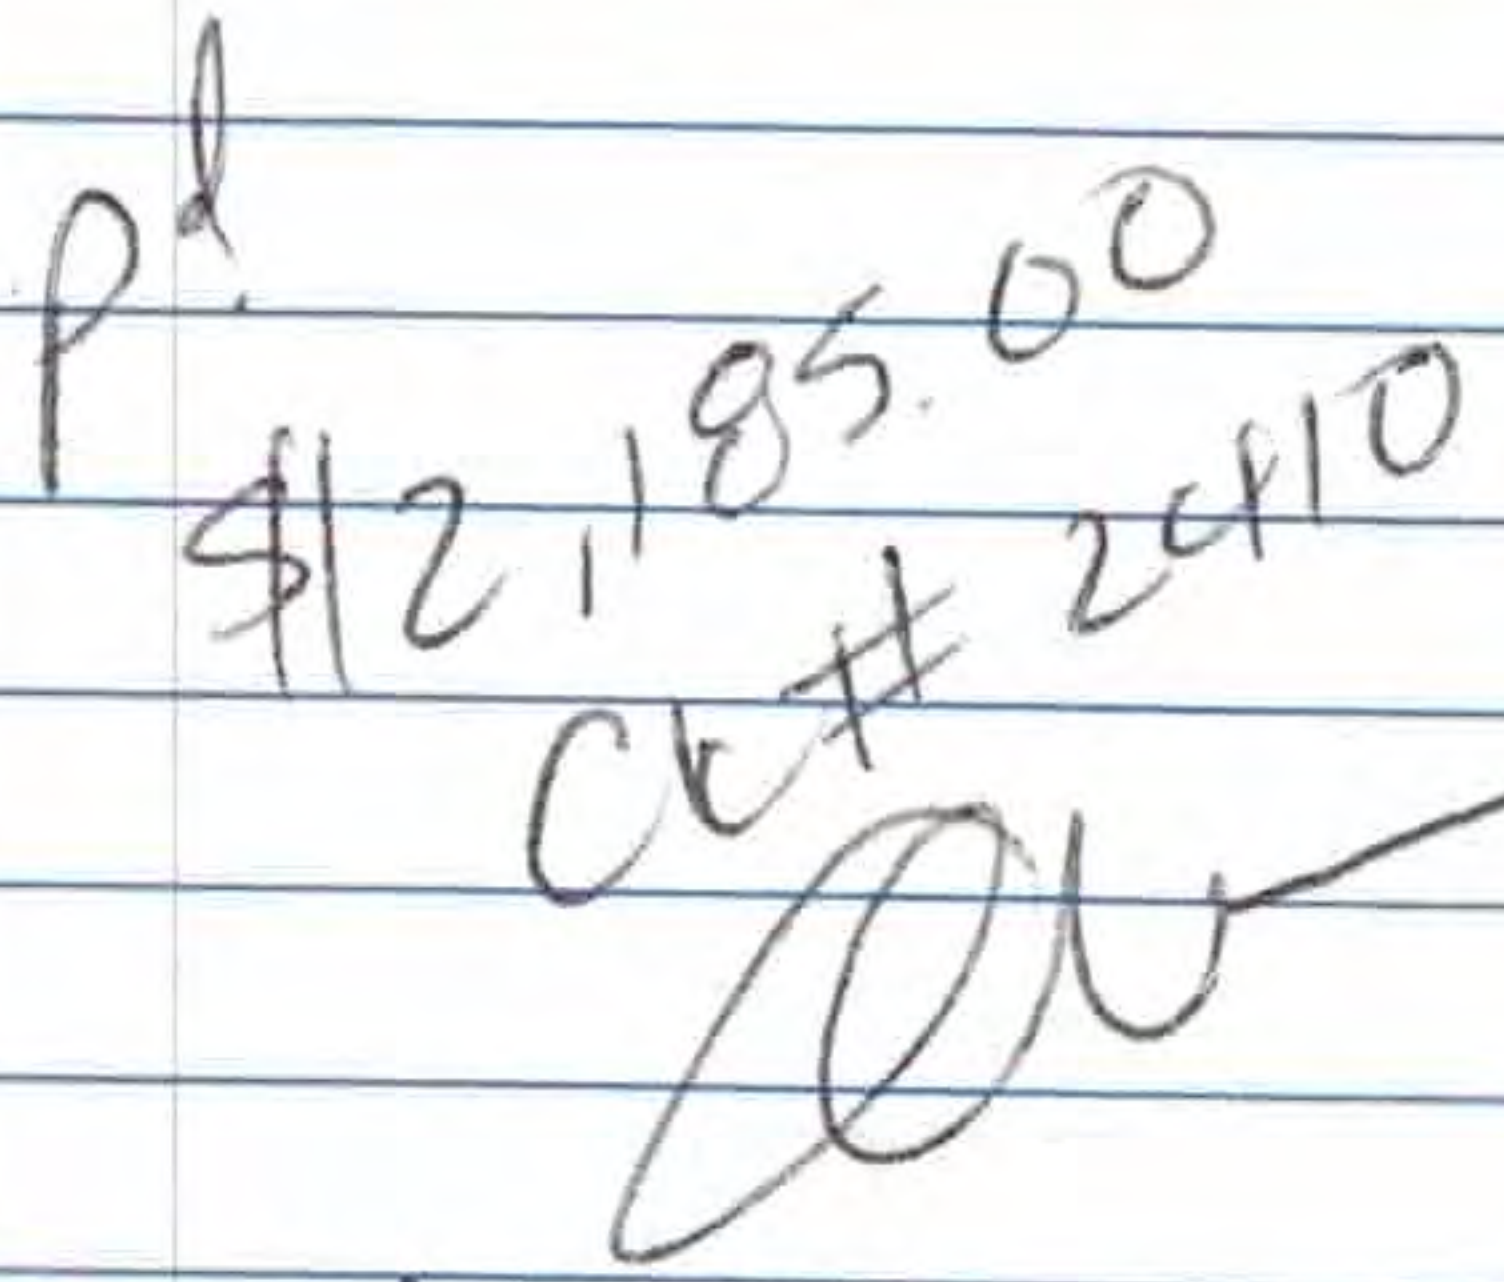 Pd.
$12,185.00
Ck# 2410